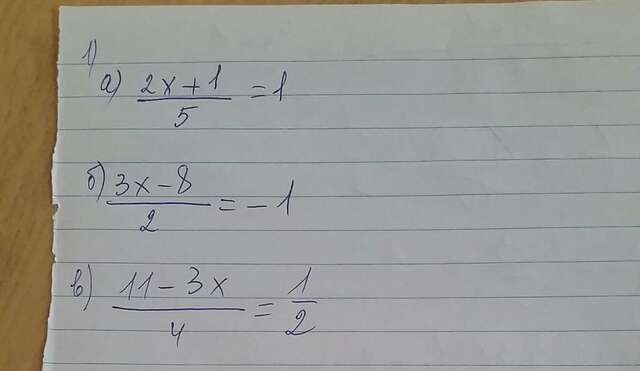 1)
а) (2x + 1)/5 = 1
б) (3x - 8)/2 = -1
в) (11 - 3x)/4 = 1/2